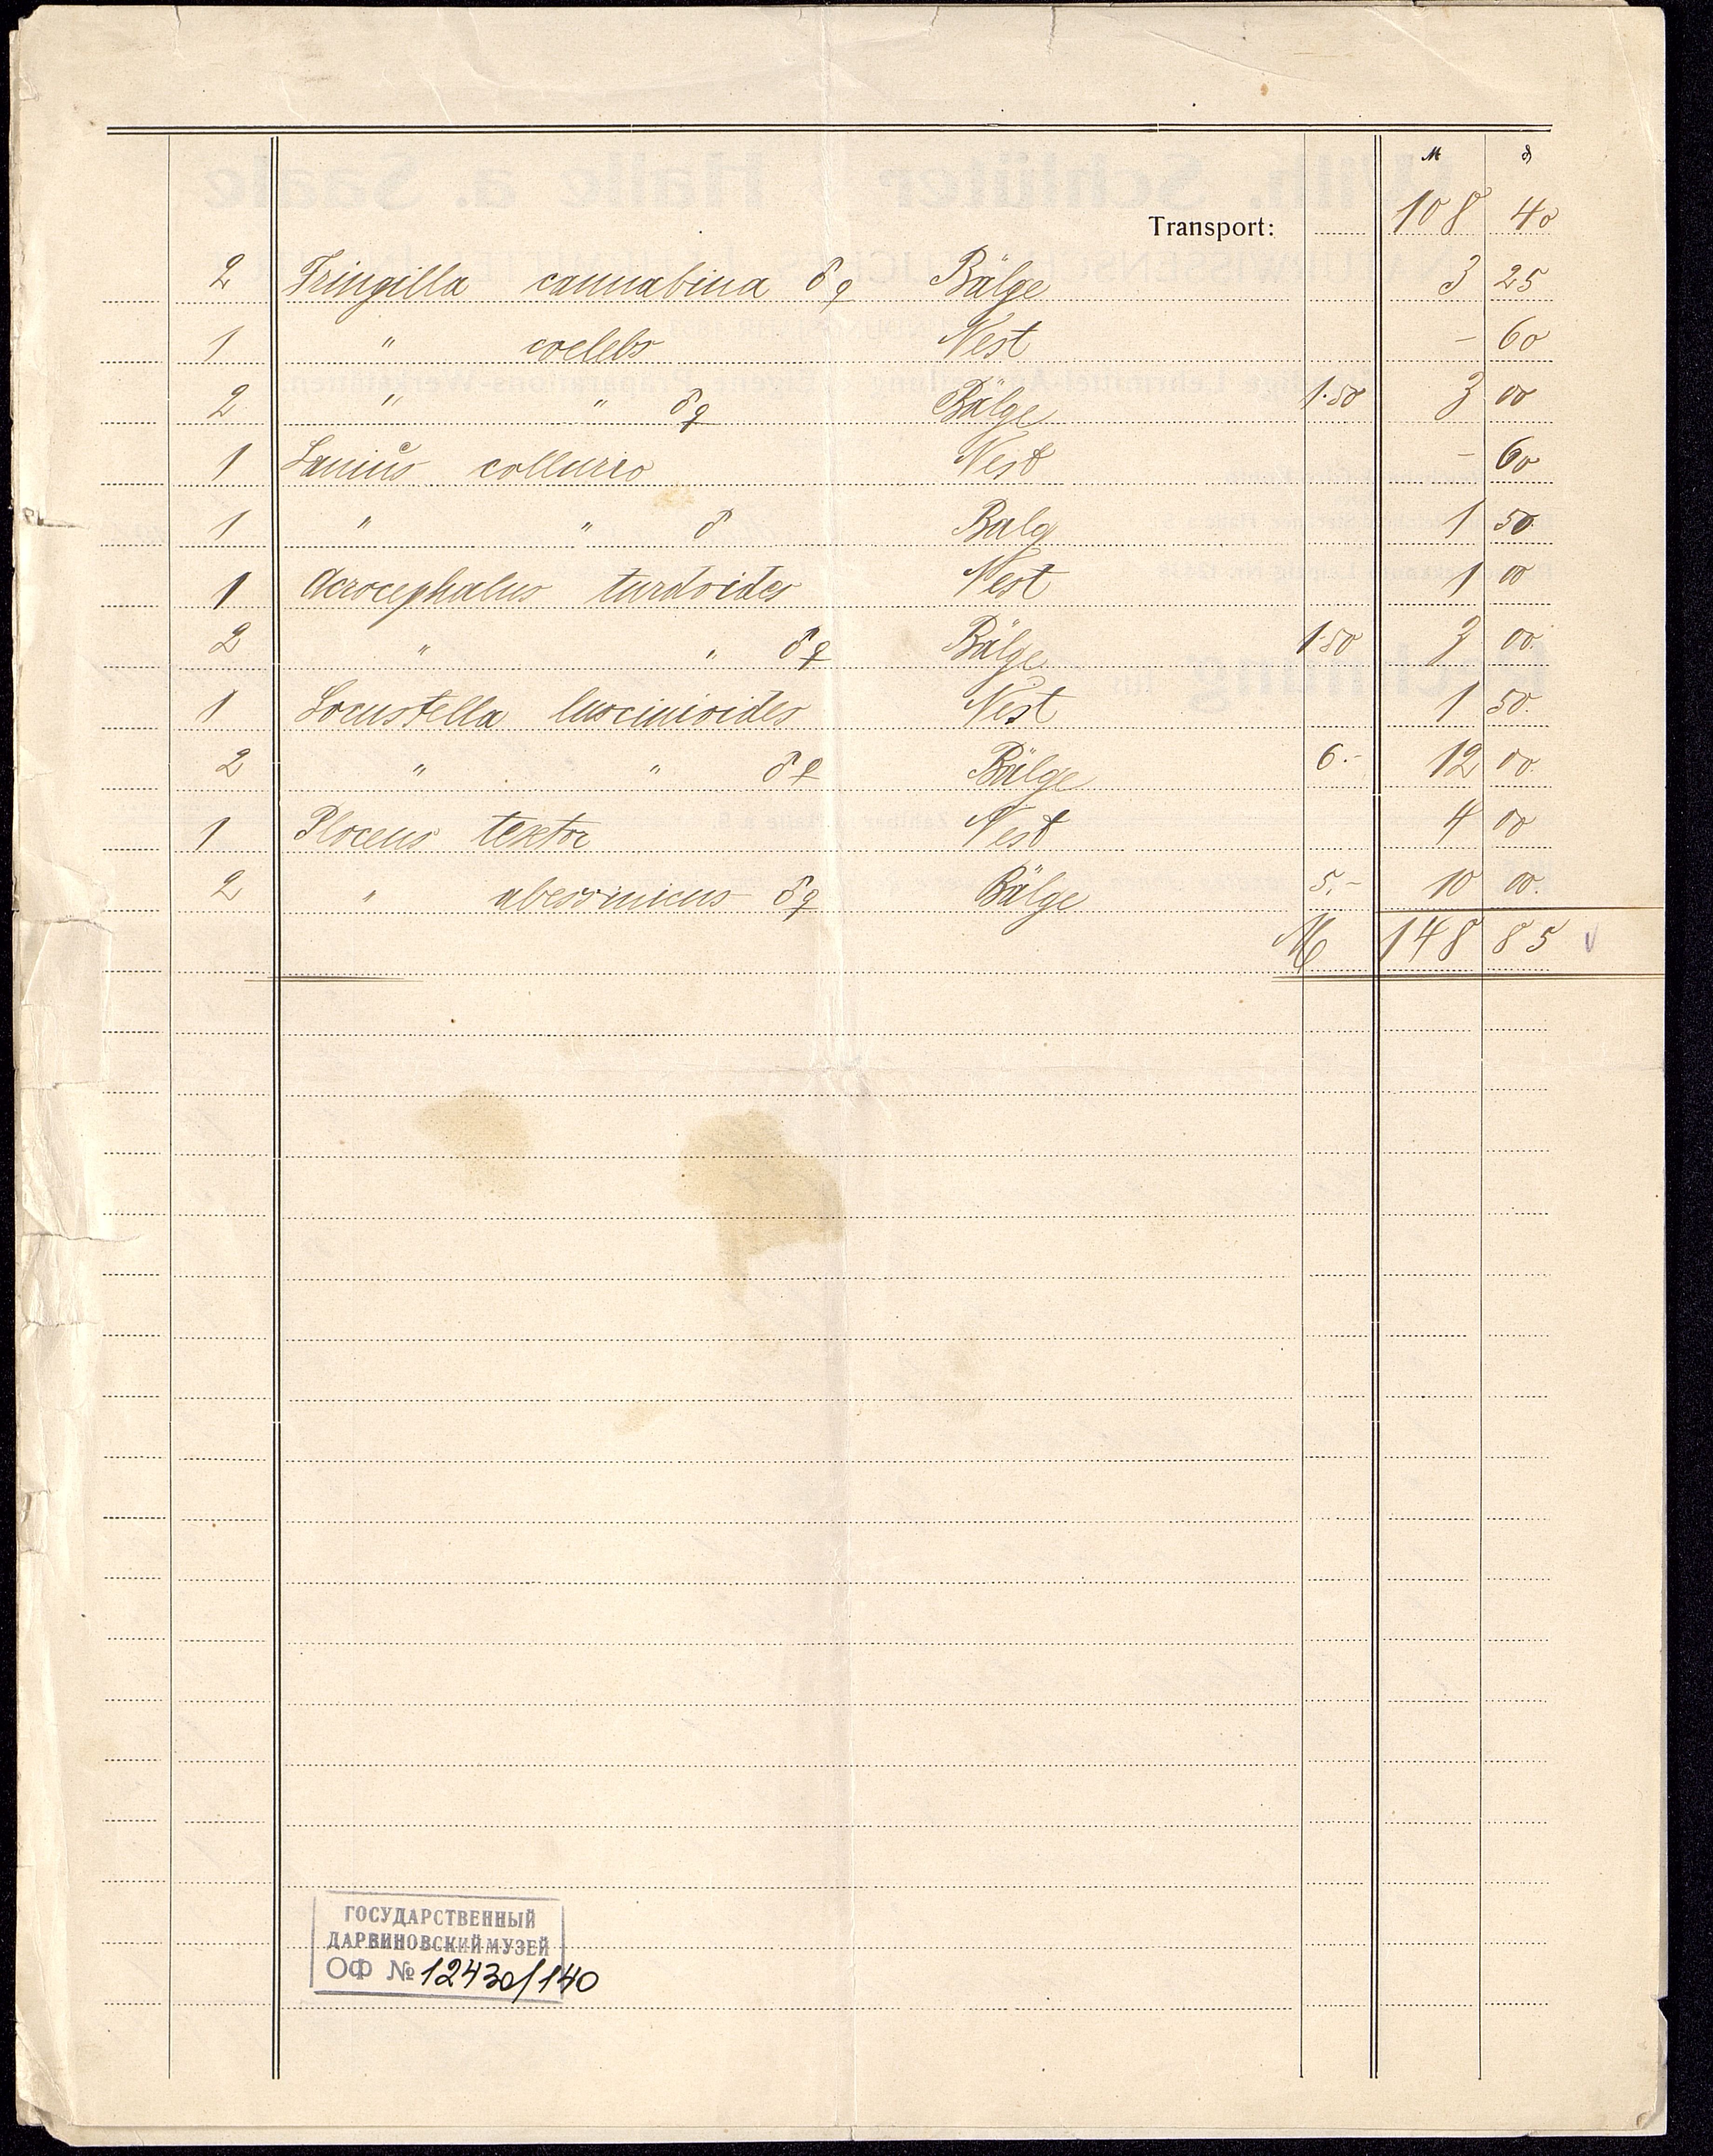 M ₰
Transport: 108 40
2 Fringilla cannabina ♂♀ Bälge 3 25
1 " coelebs Nest - 60
2 " " ♂♀ Bälge 1.50 3 00
1 Lanius collurio Nest - 60
1 " " ♂ Balg 1 50
1 Acrocephalus turdoides Nest 1 00
2 " " ♂♀ Bälge 1.50 3 00
1 Locustella luscinioides Nest 1 50
2 " " ♂♀ Bälge 6.- 12 00
1 Ploceus textor Nest 4 00
2 " abessinicus ♂♀ Bälge 5.- 10 00
M 148 85
ГОСУДАРСТВЕННЫЙ
ДАРВИНОВСКИЙ МУЗЕЙ
ОФ № 12430/140